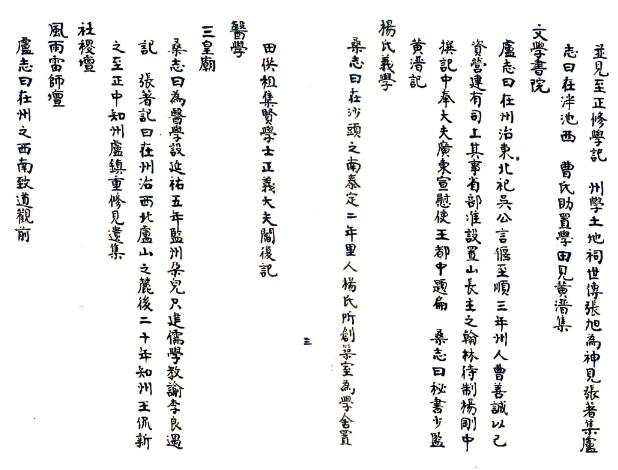 並見至正修學記　州學土地祠世傳張旭為神見張著集盧
志曰在泮池西　曹氏助置學田見黃溍集
文學書院
盧志曰在州治東北祀吳公言偃至順三年州人曹善誠以己
資營建有司上其事省部准設置山長主之翰林待制楊剛中
撰記中奉大夫廣東宣慰使王都中題扁　桑志曰秘書少監
黃溍記
楊氏義學
桑志曰在沙頭之南泰定二年里人楊氏所創築室為學舍置
三
田供租集賢學士正義大夫閻復記
醫學
三皇廟
桑志曰為醫學設延祐五年監州朶兒只進儒學教諭李良遇
記　張著記曰在州治西北盧山之麓後二十年知州王侃新
之至正中知州盧鎮重修見遺集
社稷壇
風雨雷師壇
盧志曰在州之西南致道觀前